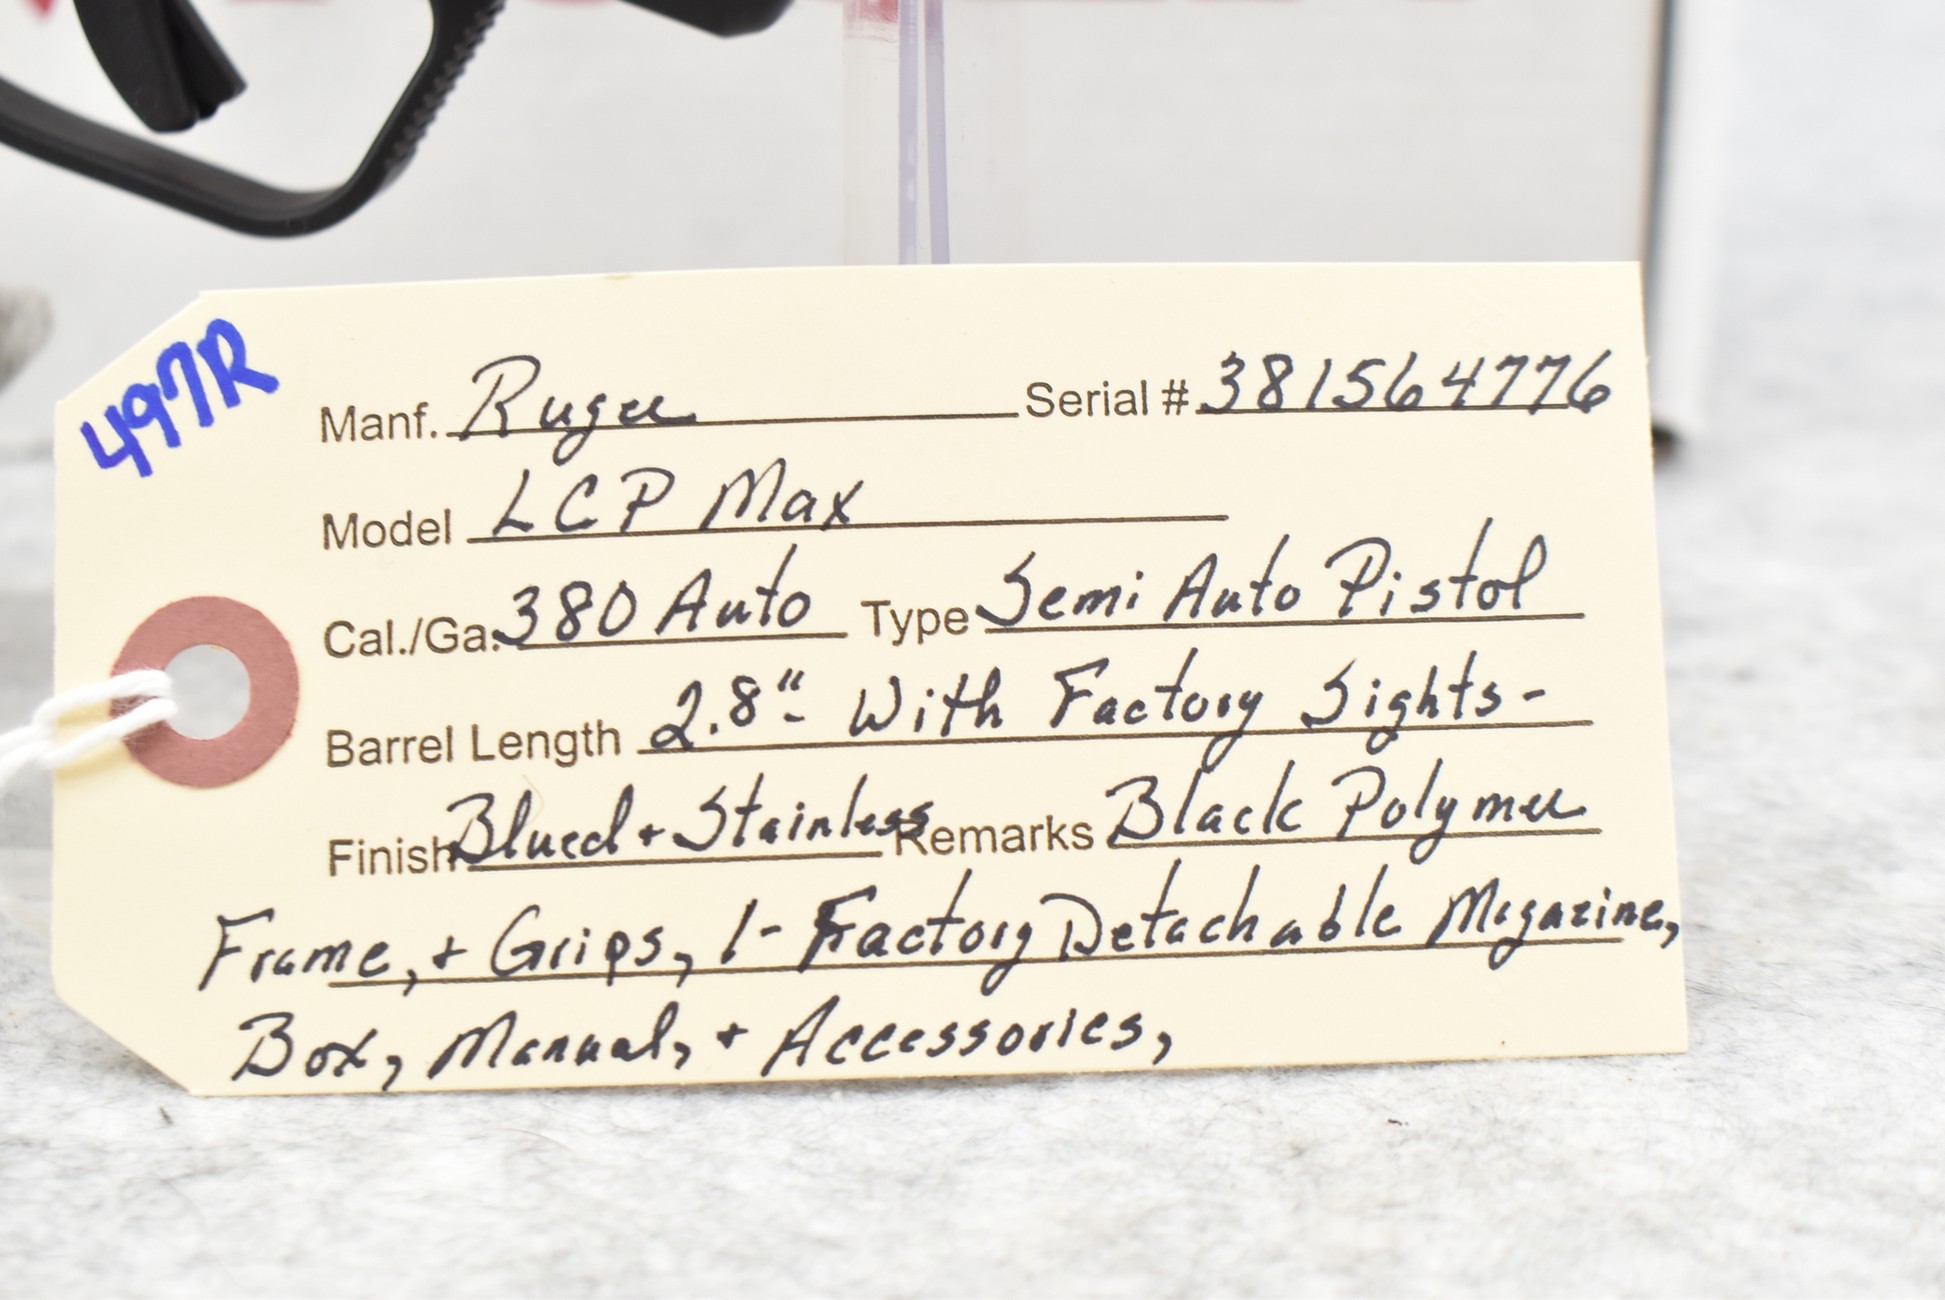 497R
Manf. Ruger Serial # 381564776
Model LCP Max
Cal./Ga. 380 Auto Type Semi Auto Pistol
Barrel Length 2.8" - With Factory Sights -
Finish Blued + Stainless Remarks Black Polymer
Frame, + Grips, 1 - Factory Detachable Magazine,
Box, Manual, + Accessories,